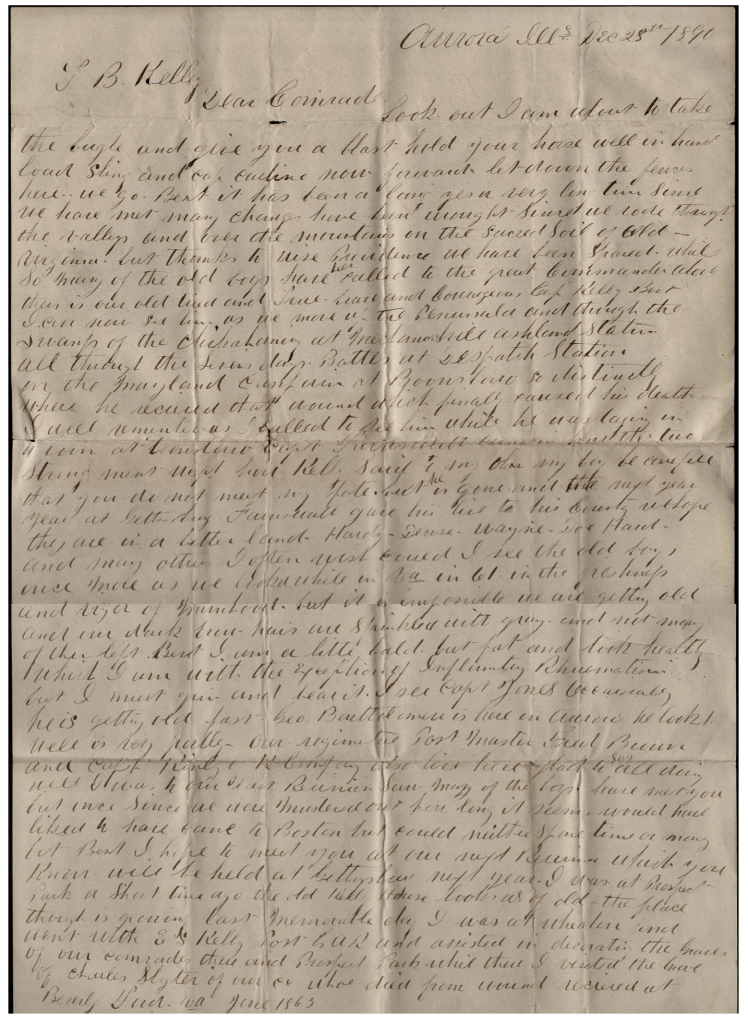 Aurora Ills Dec 28th 1890
T B Kelley
Dear Comrad Look out I am about to take
the bugle and give you a blast hold your horse well in hand
load sling and cap carbine now forward let down the fences
here we go. Bert it has been a long yes a very long time Since
we have met many changes have been wrought Since we rode through
the valleys and over the mountains on the Sacred Soil of Old
Virginia. but thanks to wise Providence we have been Spared while
So many of the old boys have been called to the great Commander above
their is our old tried and True brave and Courageous Cap Kelley Bert
I can now See him as we move up the Peninsula and through the
Swamps of the Chickahominy at Mechanicville ashland Station
all through the Seven days Battles at Despatch Station
in the Maryland Campain at Boonsboro So distinctly
where he received that wound which finaly caused his death
I well remember as I called to See him while he was laying in
a room at boonsboro Capt Farnsworth
Said to me Ohm my boy be carefull
that you do not meet my fate but he is gone and the next year
year at Gettysburg Farnsworth gave his live to his County we hope
they are in a better land. Hardy Dense Wayne Joe Hand
and many others I often wish could I See the old boys
once more as we looked while in Va in 61 in the
and vigor of manhood. but it is impossible we are getting old
and our dark brown hairs are Sprinkled with gray and not many
of them left. Bert I am a little bald. but fat and look healthy
which I am with the Exception of Inflimitory Rhuematism
but I must grin and bear it. I see Capt Jones Occasionaly
he is getting old fast. Geo Bartholomew is here in Aurora he looks
well is our regime Post Master Fred Brown
and Capt King of K Company also live here glad to say all doing
well I was to our last Reunion Saw Many of the boys have met you
but once Since we were Mustered out how long it seems would have
liked to have came to Boston but could neither Spare time or mony
but Bert I hope to meet you at our next Reunion which you
Know will be held at Gettysburg next year. I was at Prospect
Park a Short time ago the old Kell House looks as of old the place
though is growing last memorable day I was at Wheaton and
went with E S Kelley Post GAR and assisted in decorating the Graves
of our comrades there and Prospect Park while there I visited the Grave
of Charles Slyter of our co who died from wound received at
Beverly Ford Va June 1863